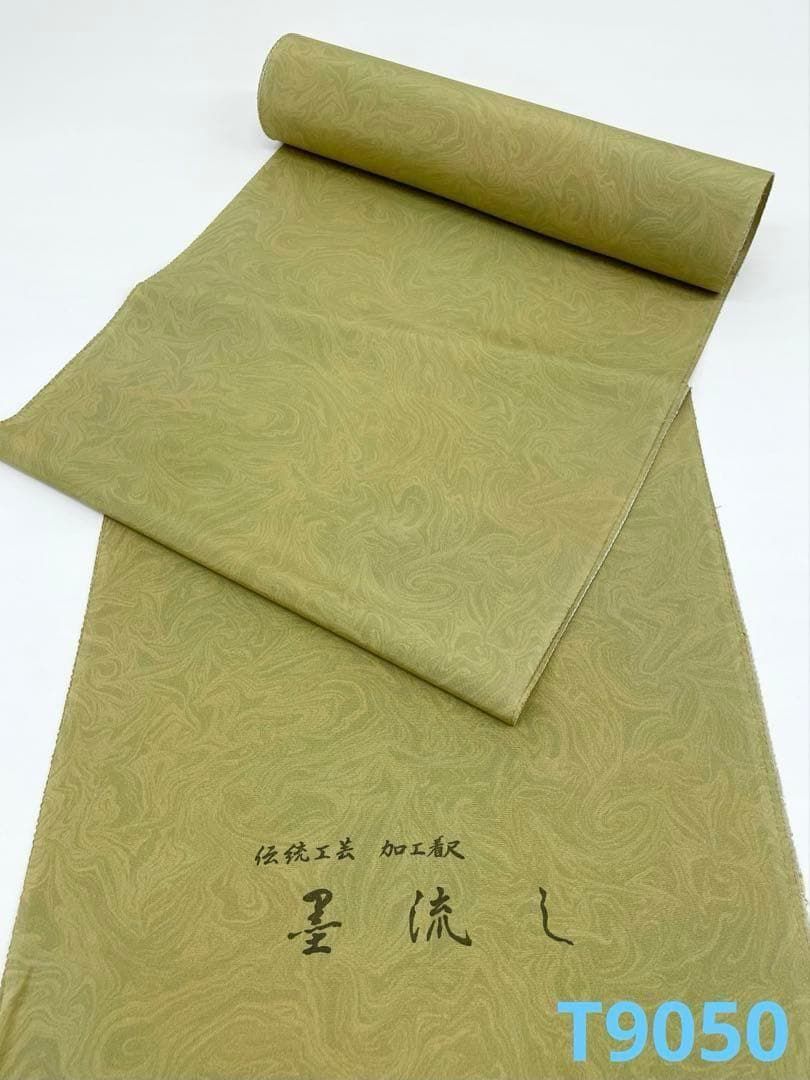 伝統工芸 加工着尺
墨流し
T9050